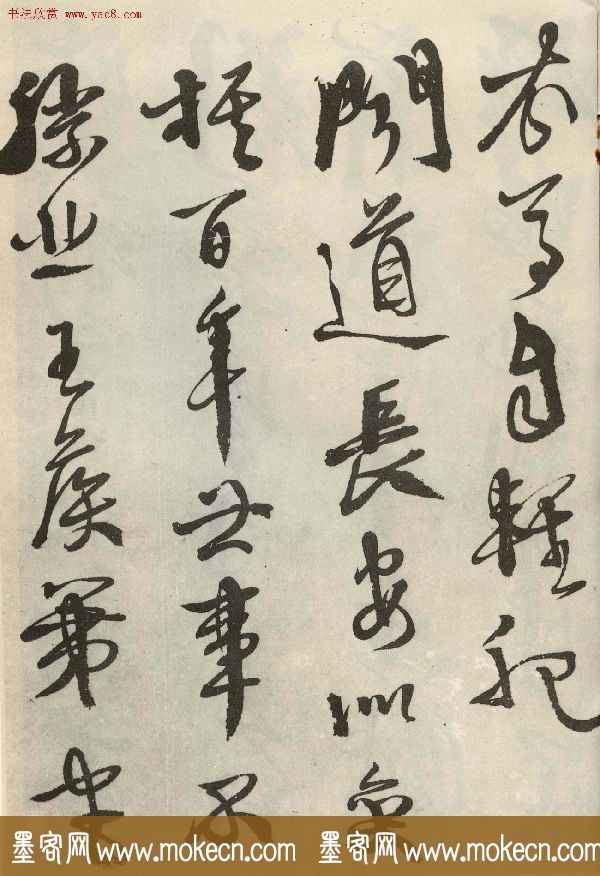 书法欣赏 www.yac8.com
衣馬自輕肥
聞道長安似奕
棋百年世事不
勝悲王侯第宅
墨客网 www.mokecn.com 墨客网 www.mokecn.com